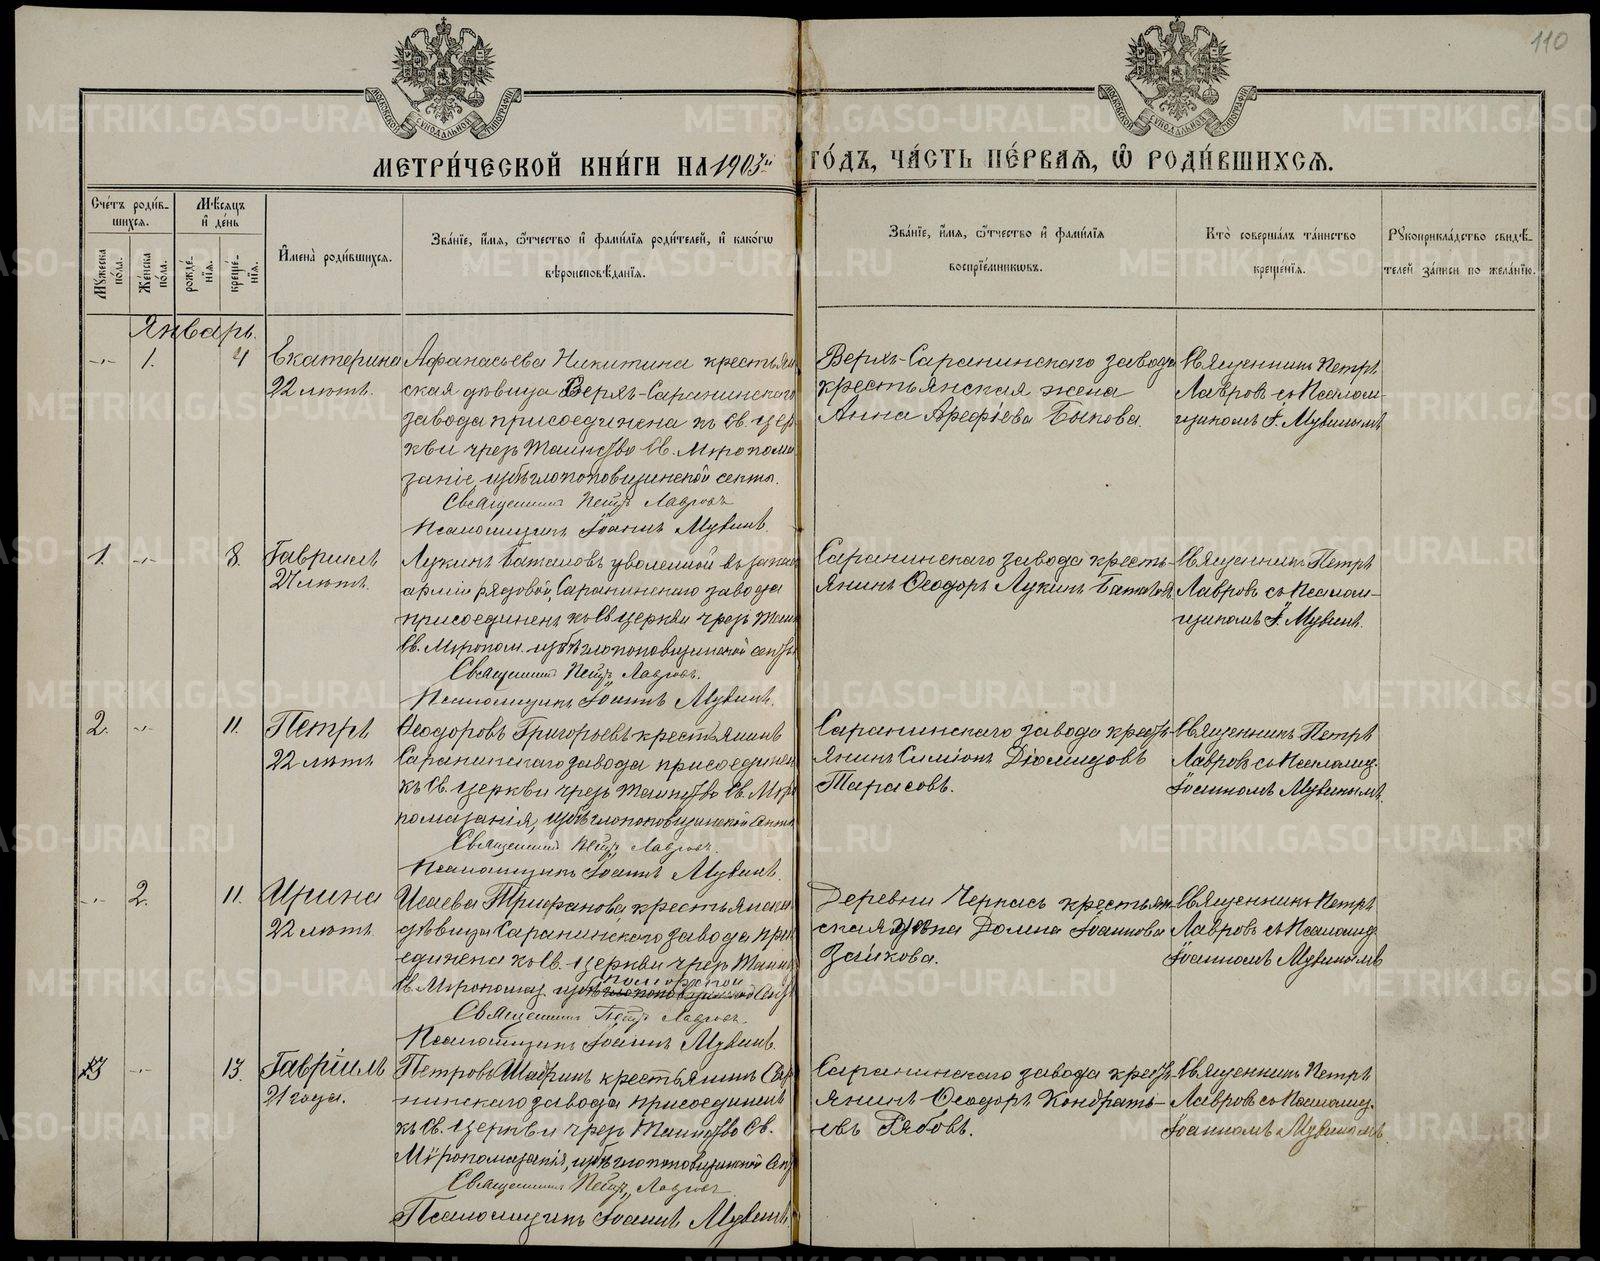 110
МЕТРИ́ЧЕСКОЙ КНИ́ГИ НА 1903й ГО́ДЪ, ЧА́СТЬ ПЕ́РВАѦ, Ѡ҆ РОДИ́ВШИХСѦ.
Сче́тъ роди́в-
шихся.
Мѣ́сяцъ
и҆ де́нь
Мꙋ́жеска
по́ла.
Же́нска
по́ла.
рожде́-
нїя.
креще́-
нїя.
И҆мена̀ роди́вшихся.
Зва́нїе, и҆́мя, ѻ҆́тчество и҆ фами́лїя роди́телей, и҆ како́гѡ
вѣроисповѣ́данїя.
Зва́нїе, и҆́мя, ѻ҆́тчество и҆ фами́лїя
воспрїе́мниковъ.
Кто̀ соверша́лъ та́инство
креще́нїя.
Рꙋкоприкла́дство свидѣ́-
телей за́писи по жела́нїю.
Январь.
1. 4 Екатерина
22 лѣтъ.
Афанасьева Никитина крестьян
ская дѣвица Верхъ-Саранинскаго
завода присоединена къ Св. цер
кви чрезъ Таинство Св. Мѵропома
заніе, изъ бѣглопоповщинской секты.
Священникъ Петръ Лавровъ
Псаломщикъ Іоаннъ Мукинъ.
Верхъ-Саранинскаго завода
крестьянская жена
Анна Арефіева Быкова.
Священникъ Петръ
Лавровъ съ Псалом-
щикомъ І. Мукинымъ
1. 8. Гавриилъ
27 лѣтъ.
Лукинъ Баталовъ уволенной въ запас
арміи рядовой, Саранинскаго завода
присоединенъ къ Св церкви чрезъ Таин
Св. Мѵропом. изъ бѣглопоповщинской секты
Священникъ Петръ Лавровъ.
Псаломщикъ Іоаннъ Мукинъ.
Саранинскаго завода кресть-
янинъ Ѳеодоръ Лукинъ Баталовъ
Священникъ Петръ
Лавровъ съ Псалом-
щикомъ І. Мукинъ.
2. 11. Петръ
22 лѣтъ
Ѳеодоровъ Григорьевъ крестьянинъ
Саранинскаго завода присоединен
къ Св. церкви чрезъ Таинство Св. Мѵро
помазанія, изъ бѣглопоповщинской секты
Священникъ Петръ Лавровъ.
Псаломщикъ Іоаннъ Мукинъ.
Саранинскаго завода кресть-
янинъ Симіонъ Діомидовъ
Тарасовъ.
Священникъ Петръ
Лавровъ съ Псаломщ.
Іоанномъ Мукинымъ.
2. 11. Ирина
22 лѣтъ.
Исаева Трифанова крестьянская
дѣвица Саранинскаго завода присо
единена къ Св. церкви чрезъ Таинст
поморской
Св. Мѵропомаз. изъ бѣглопоповщинской секты
Священникъ Петръ Лавровъ.
Псаломщикъ Іоаннъ Мукинъ.
Деревни Черкасъ крестьян-
ская жена Домна Іоаннова
Зайкова.
Священникъ Петръ
Лавровъ съ Псаломщ.
Іоанномъ Мукинымъ
3 13. Гавріилъ
21 года.
Петровъ крестьянинъ Сара
нинскаго завода присоединенъ
къ Св. церкви чрезъ Таинство Св.
Мѵропомазанія, изъ бѣглопоповщинской секты
Священникъ Петръ Лавровъ
Псаломщикъ Іоаннъ Мукинъ
Саранинскаго завода кресть-
янинъ Ѳеодоръ Кондрать-
евъ Рябовъ.
Священникъ Петръ
Лавровъ съ Псаломщ.
Іоанномъ Мукинымъ.
METRIKI.GASO-URAL.RU